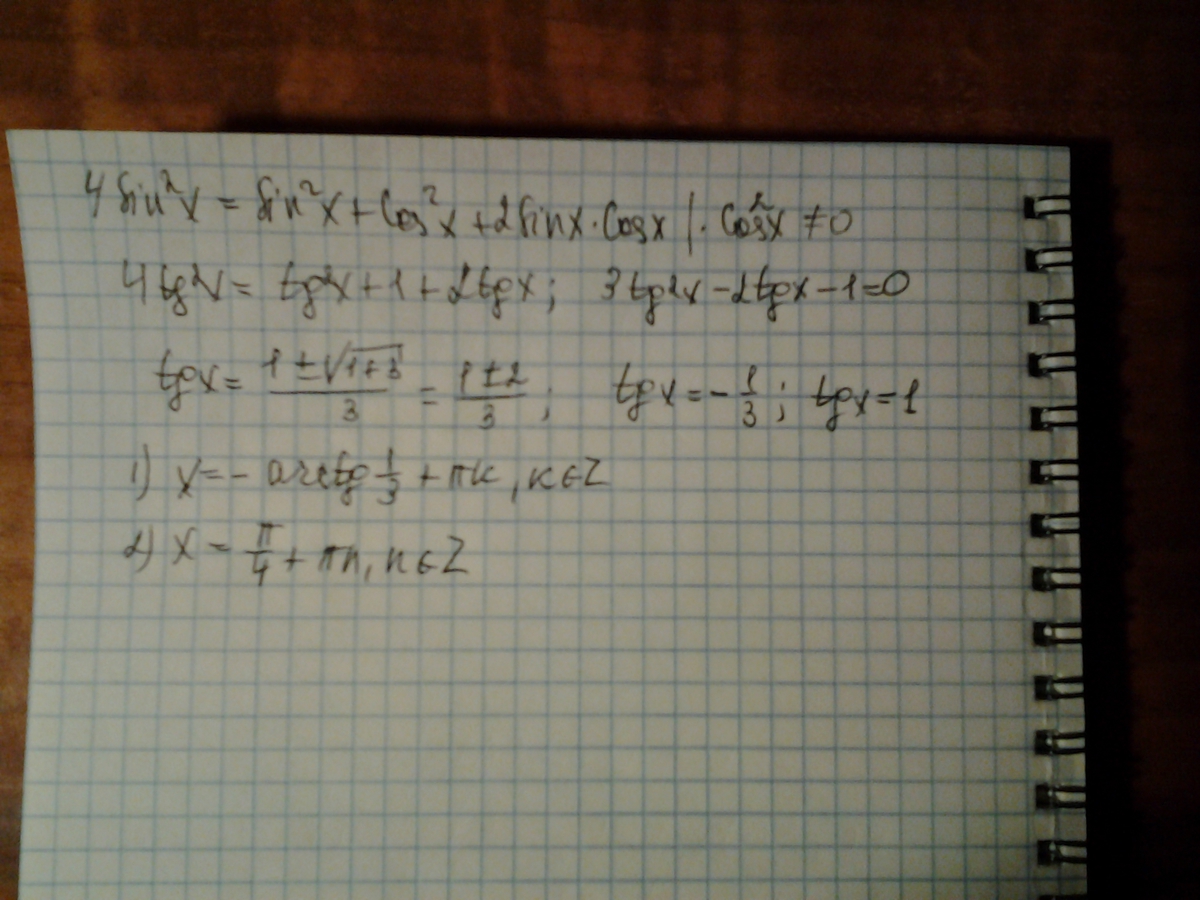 4 sin²x = sin²x + cos²x + 2 sinx · cosx | · cos²x ≠ 0
4 tg²x = tg²x + 1 + 2 tgx; 3 tg²x - 2 tgx - 1 = 0
tgx = (1 ± √(1+3))/3 = (1 ± 2)/3; tgx = - 1/3; tgx = 1
1) x = - arctg 1/3 + πk, k ∈ Z
2) x = π/4 + πn, n ∈ Z